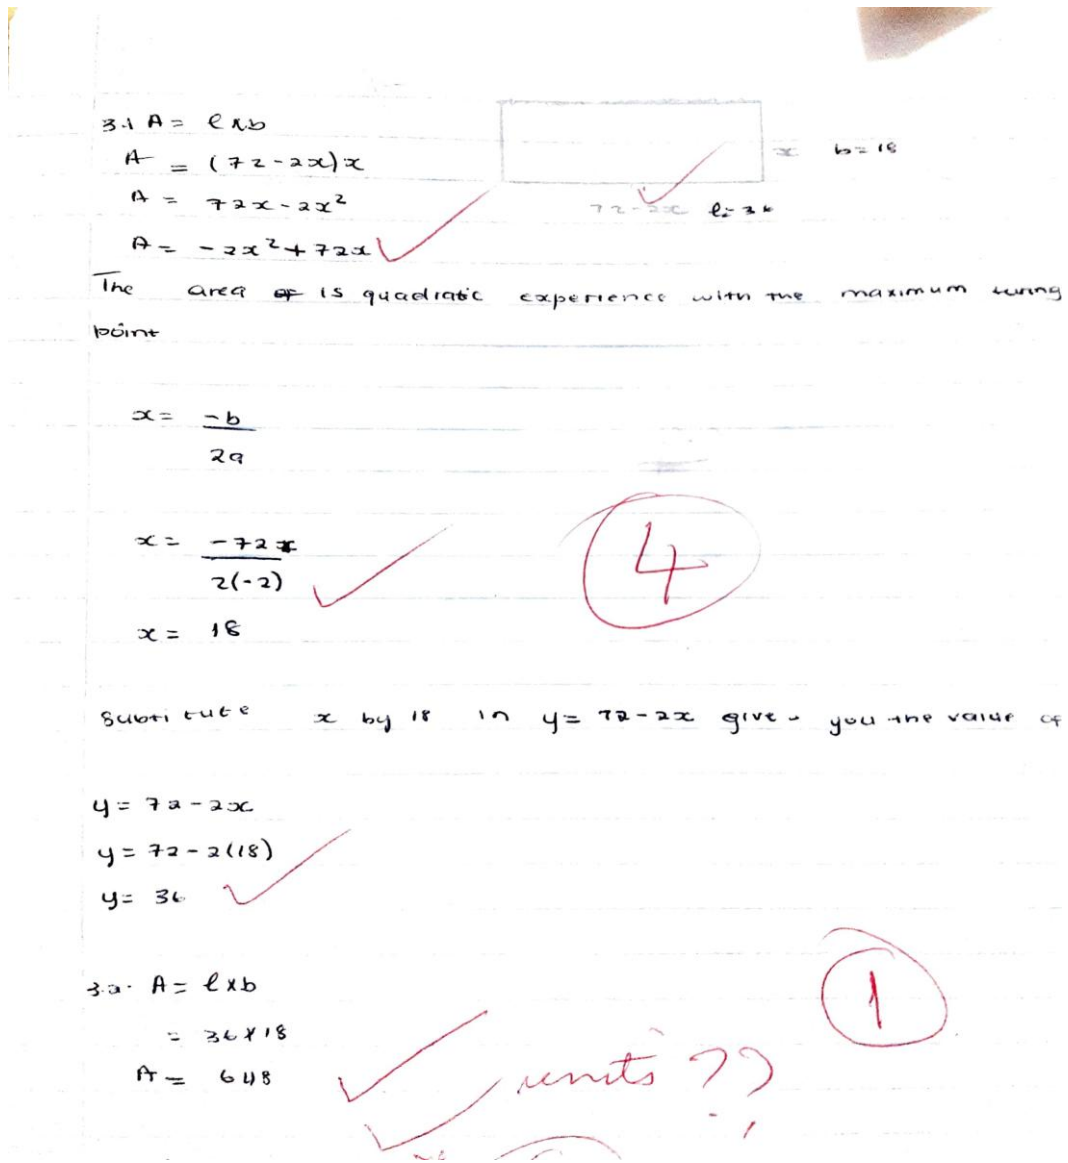 3.1 A = l x b
A = (72-2x)x
A = 72x-2x²
A = -2x²+72x
x b=18
72-2x l=36
The area of is quadratic experience with the maximum turing
point
x = -b
2a
x = -72x
2(-2)
x = 18
4
Subtitute x by 18 in y= 72-2x give you the value of
y = 72-2x
y = 72-2(18)
y = 36
3.2. A = l x b
= 36 x 18
A = 648
1
units ??